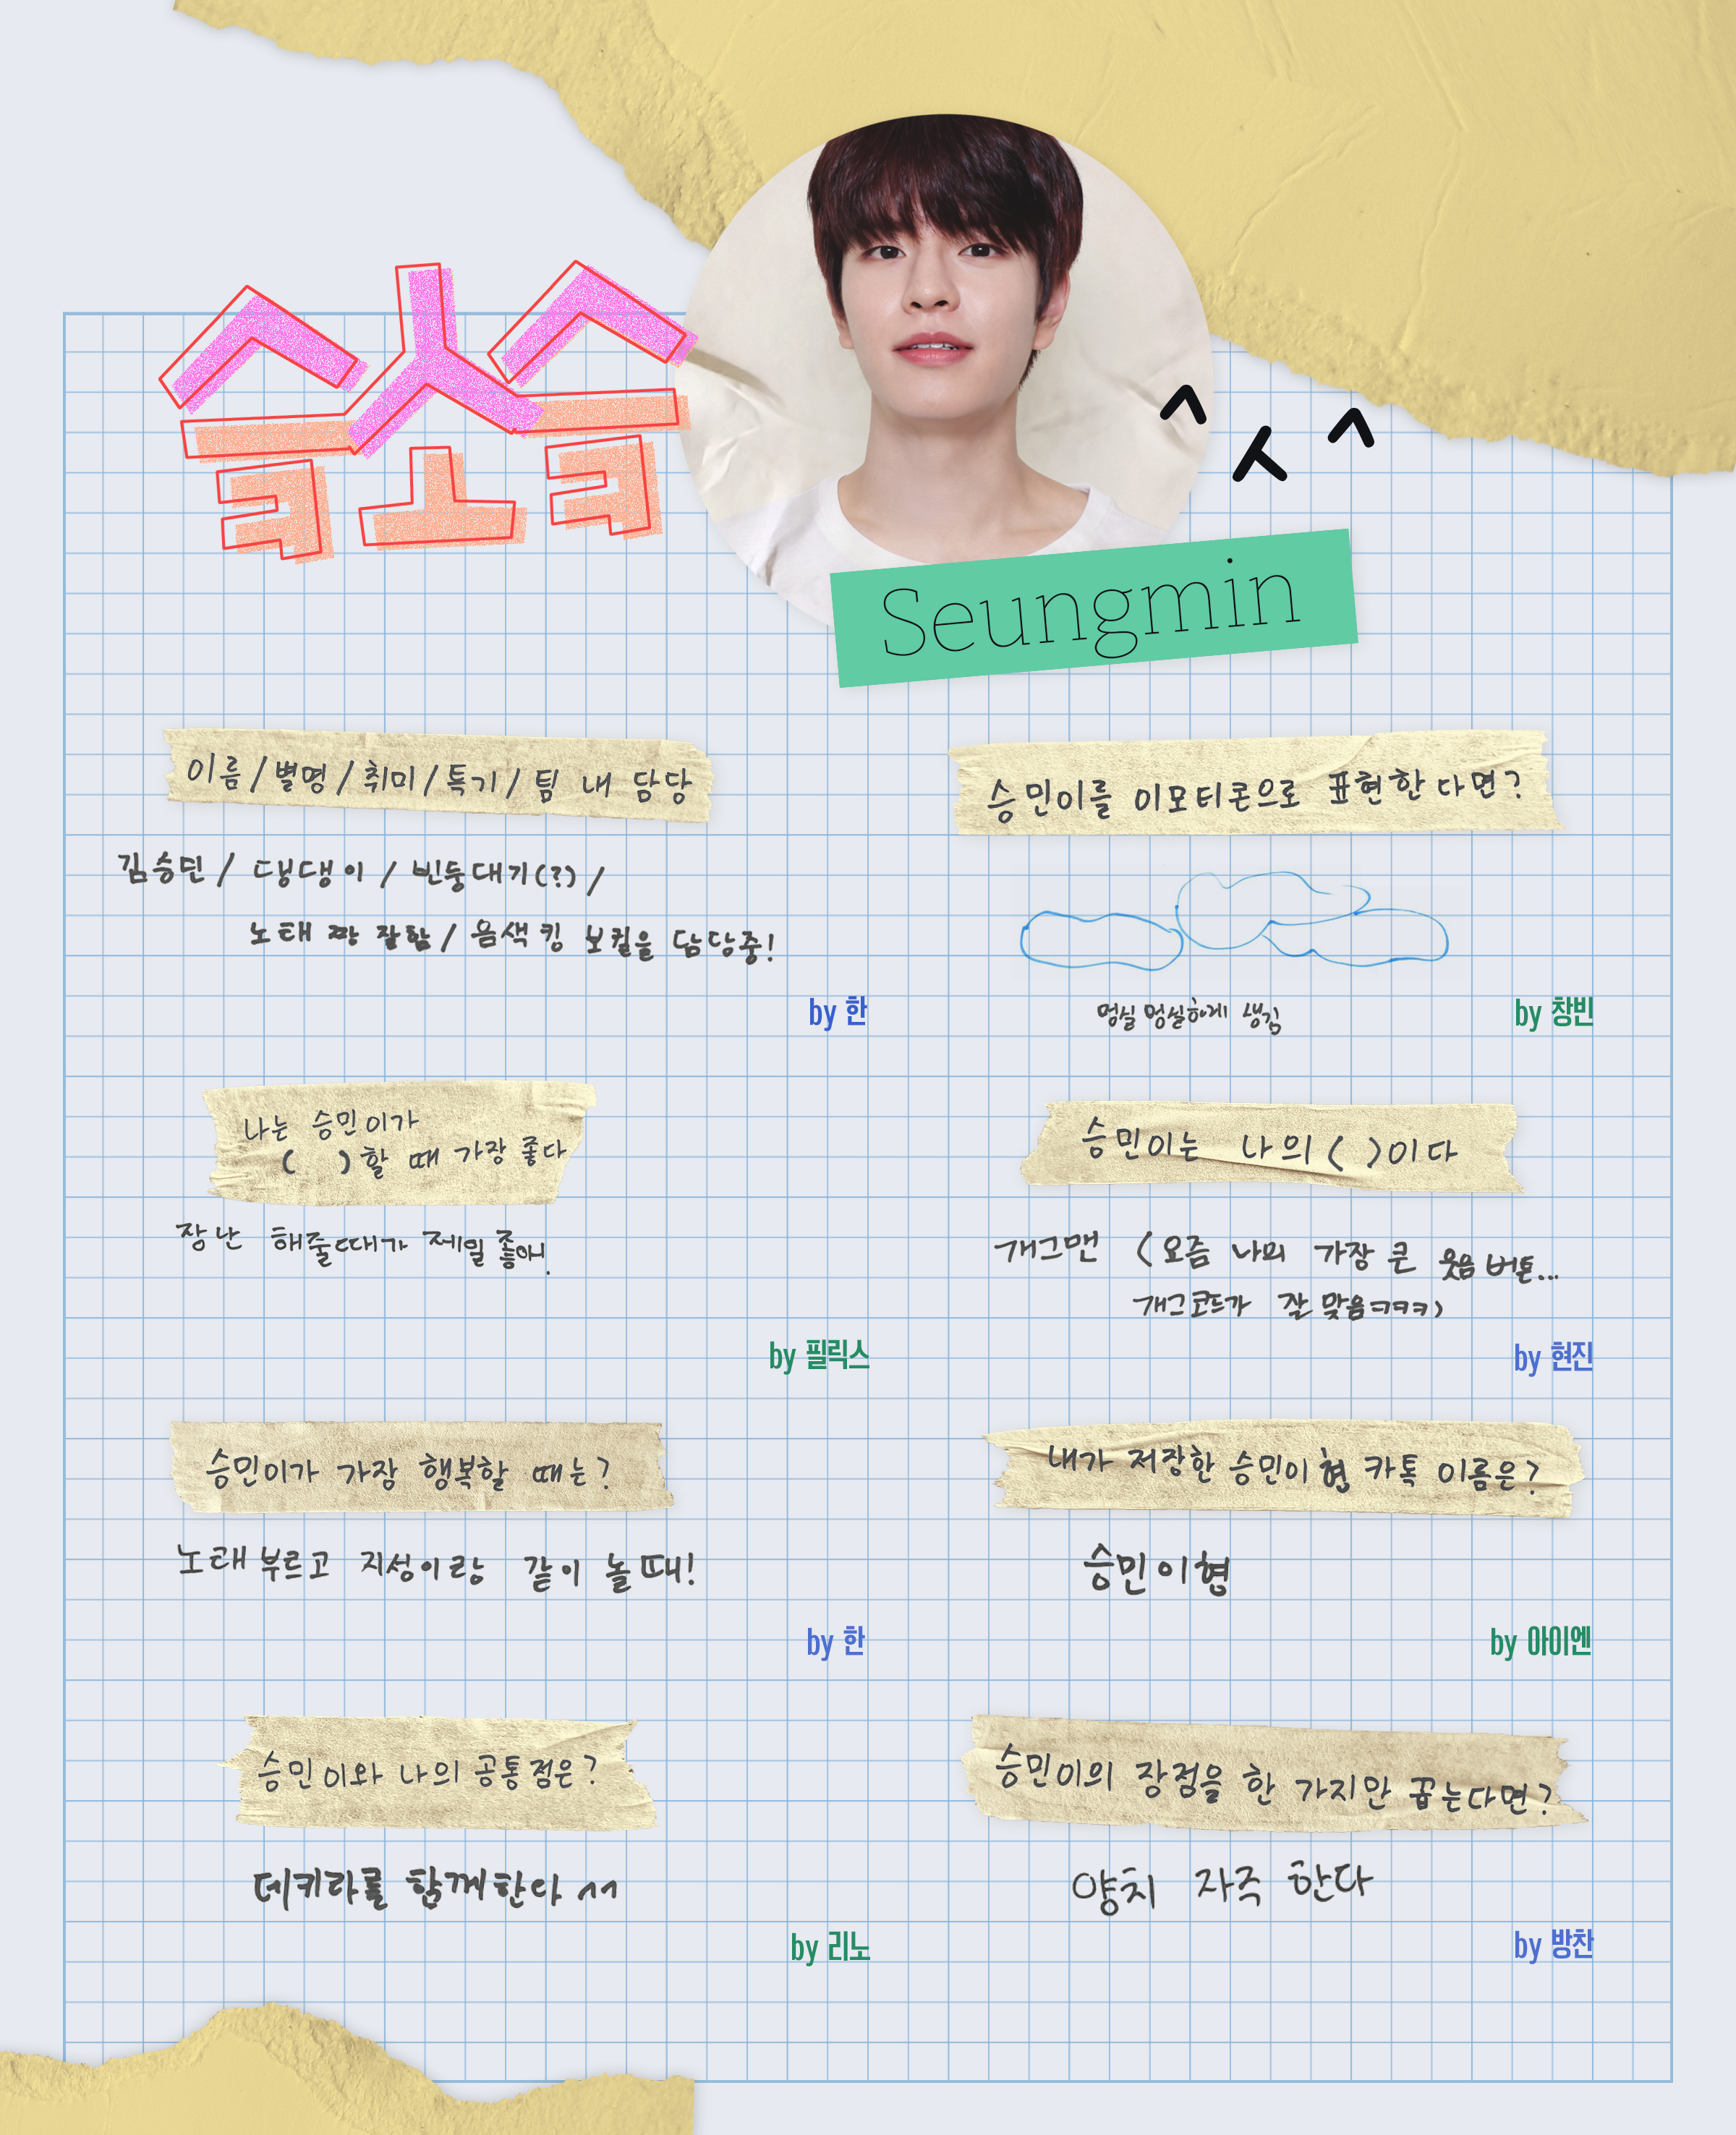 슲소슲
^ㅅ^
Seungmin
이름/별명/취미/특기/팀 내 담당
김승민 / 댕댕이 / 빈둥대기(?) /
노래 짱 잘함 / 음색 킹 보컬을 담당중!
by 한
승민이를 이모티콘으로 표현한다면?
멍실멍실하게 생김
by 창빈
나는 승민이가
( )할 때 가장 좋다
장난 해줄때가 제일 좋아.
by 필릭스
승민이는 나의 ( )이다
개그맨 (요즘 나의 가장 큰 웃음 버튼...
개그코드가 잘 맞음ㅋㅋㅋ)
by 현진
승민이가 가장 행복할 때는?
노래 부르고 지성이랑 같이 놀 때!
by 한
내가 저장한 승민이형 카톡 이름은?
승민이형
by 아이엔
승민이와 나의 공통점은?
데키라를 함께한다 ^^
by 리노
승민이의 장점을 한 가지만 꼽는다면?
양치 자주 한다
by 방찬